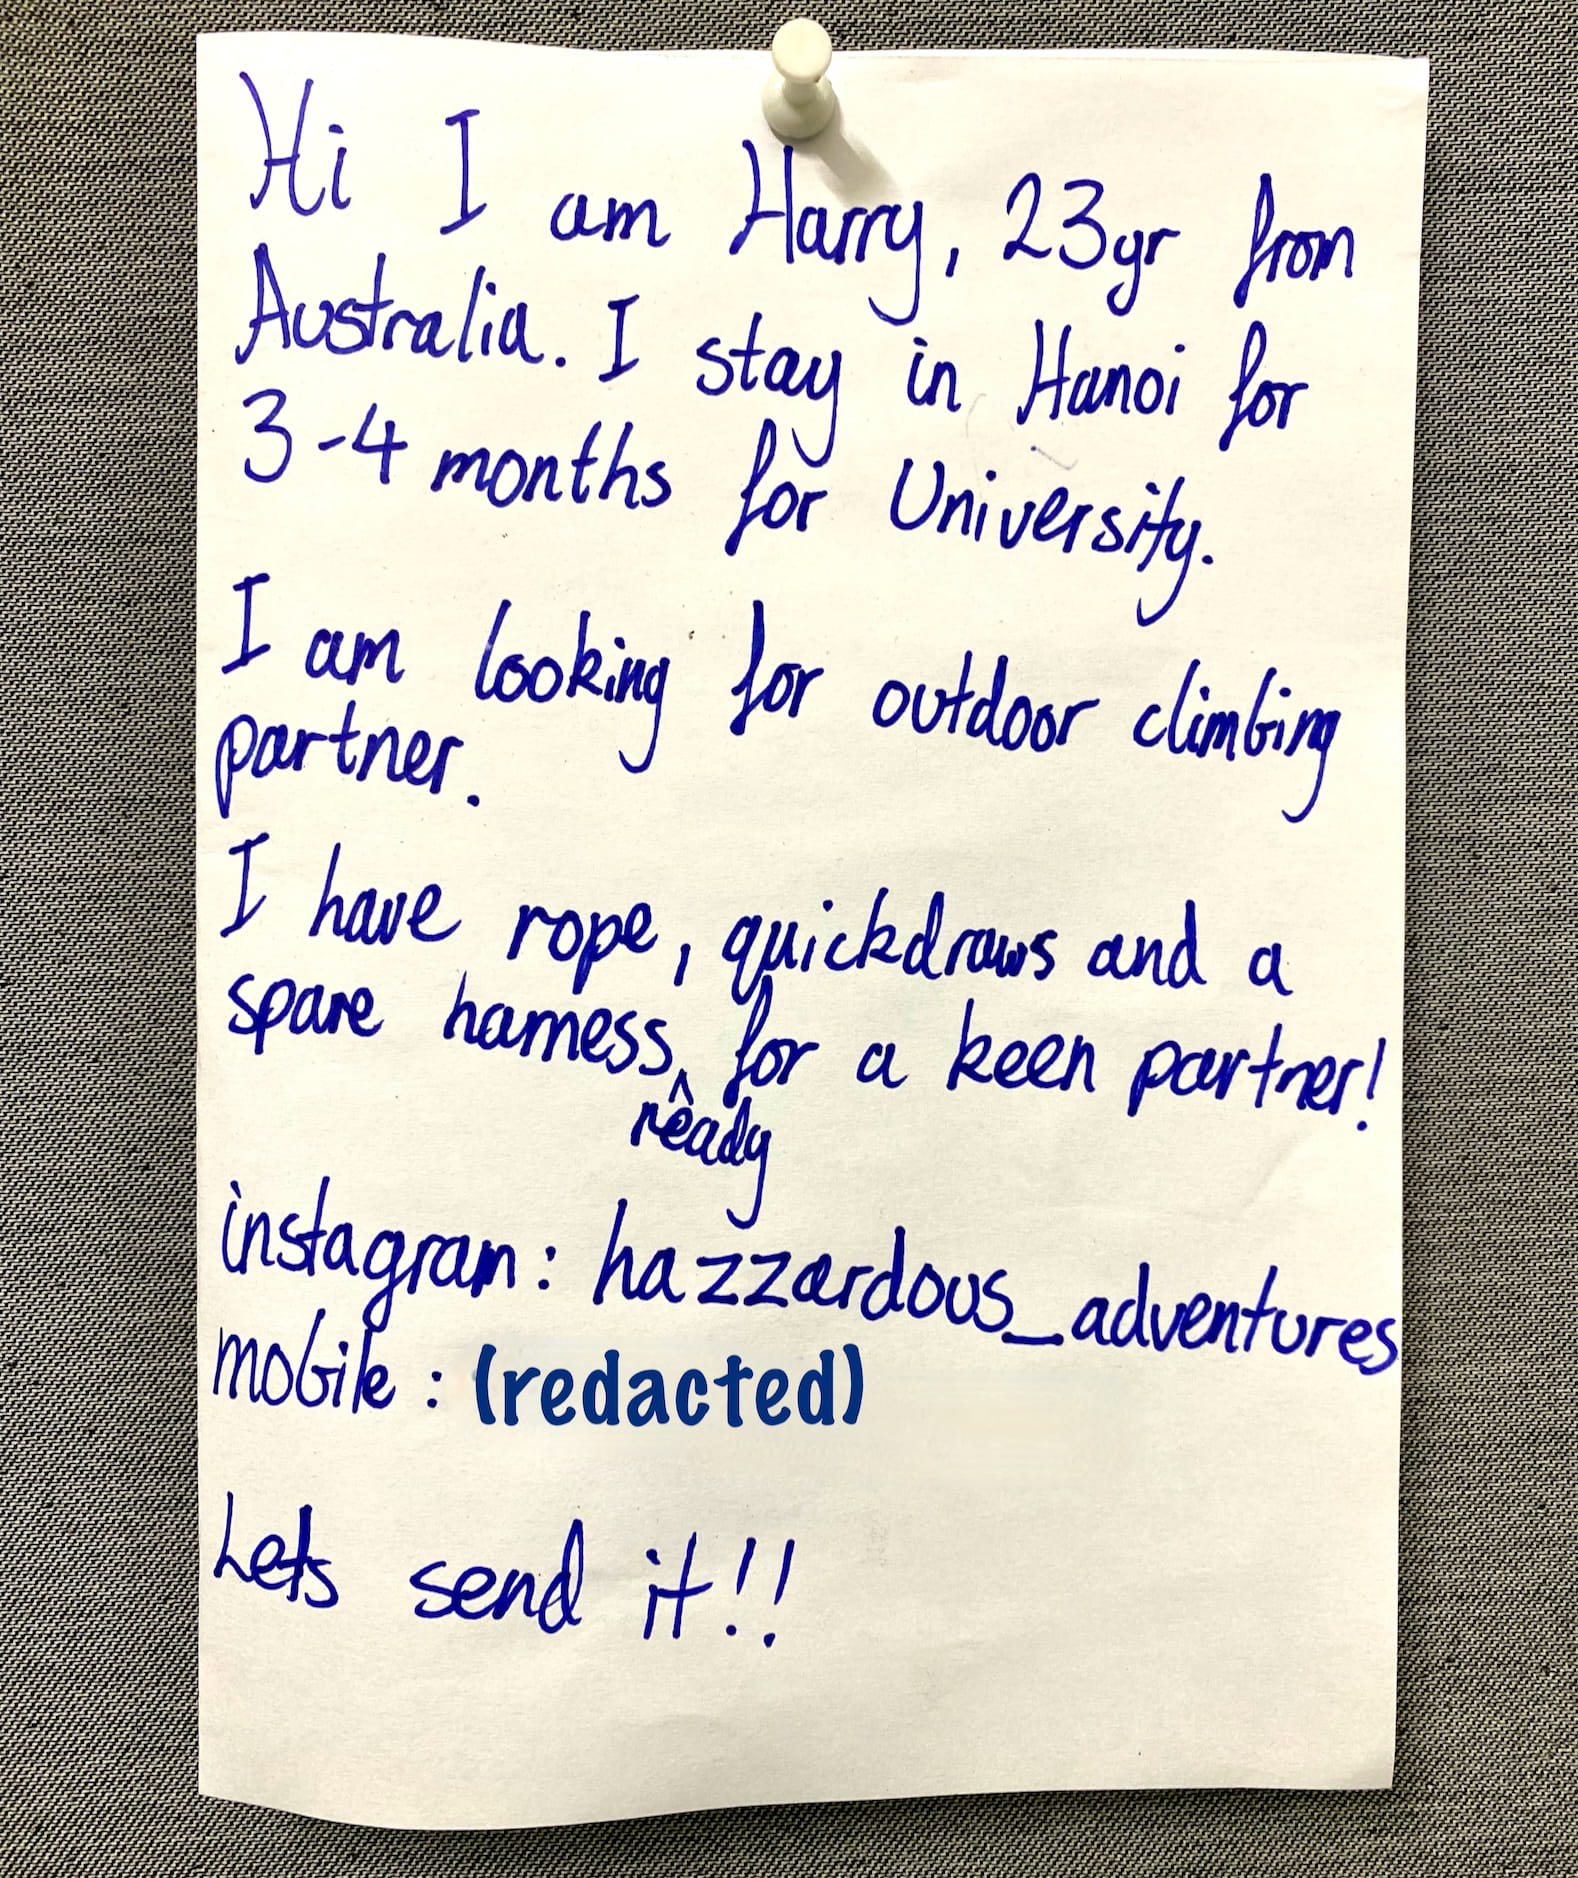 Hi I am Harry, 23yr from
Australia. I stay in Hanoi for
3-4 months for University.
I am looking for outdoor climbing
partner.
I have rope, quickdraws and a
spare harness ^ for a keen partner!
ready
instagram: hazzardous_adventures
mobile: (redacted)
Lets send it!!